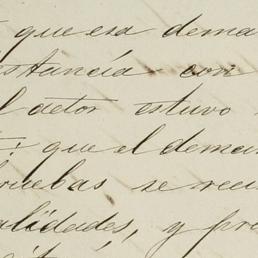 que esa dema
stancia con
l actor estuvo
: que el deman
ruebas se reci
alidades, y pre